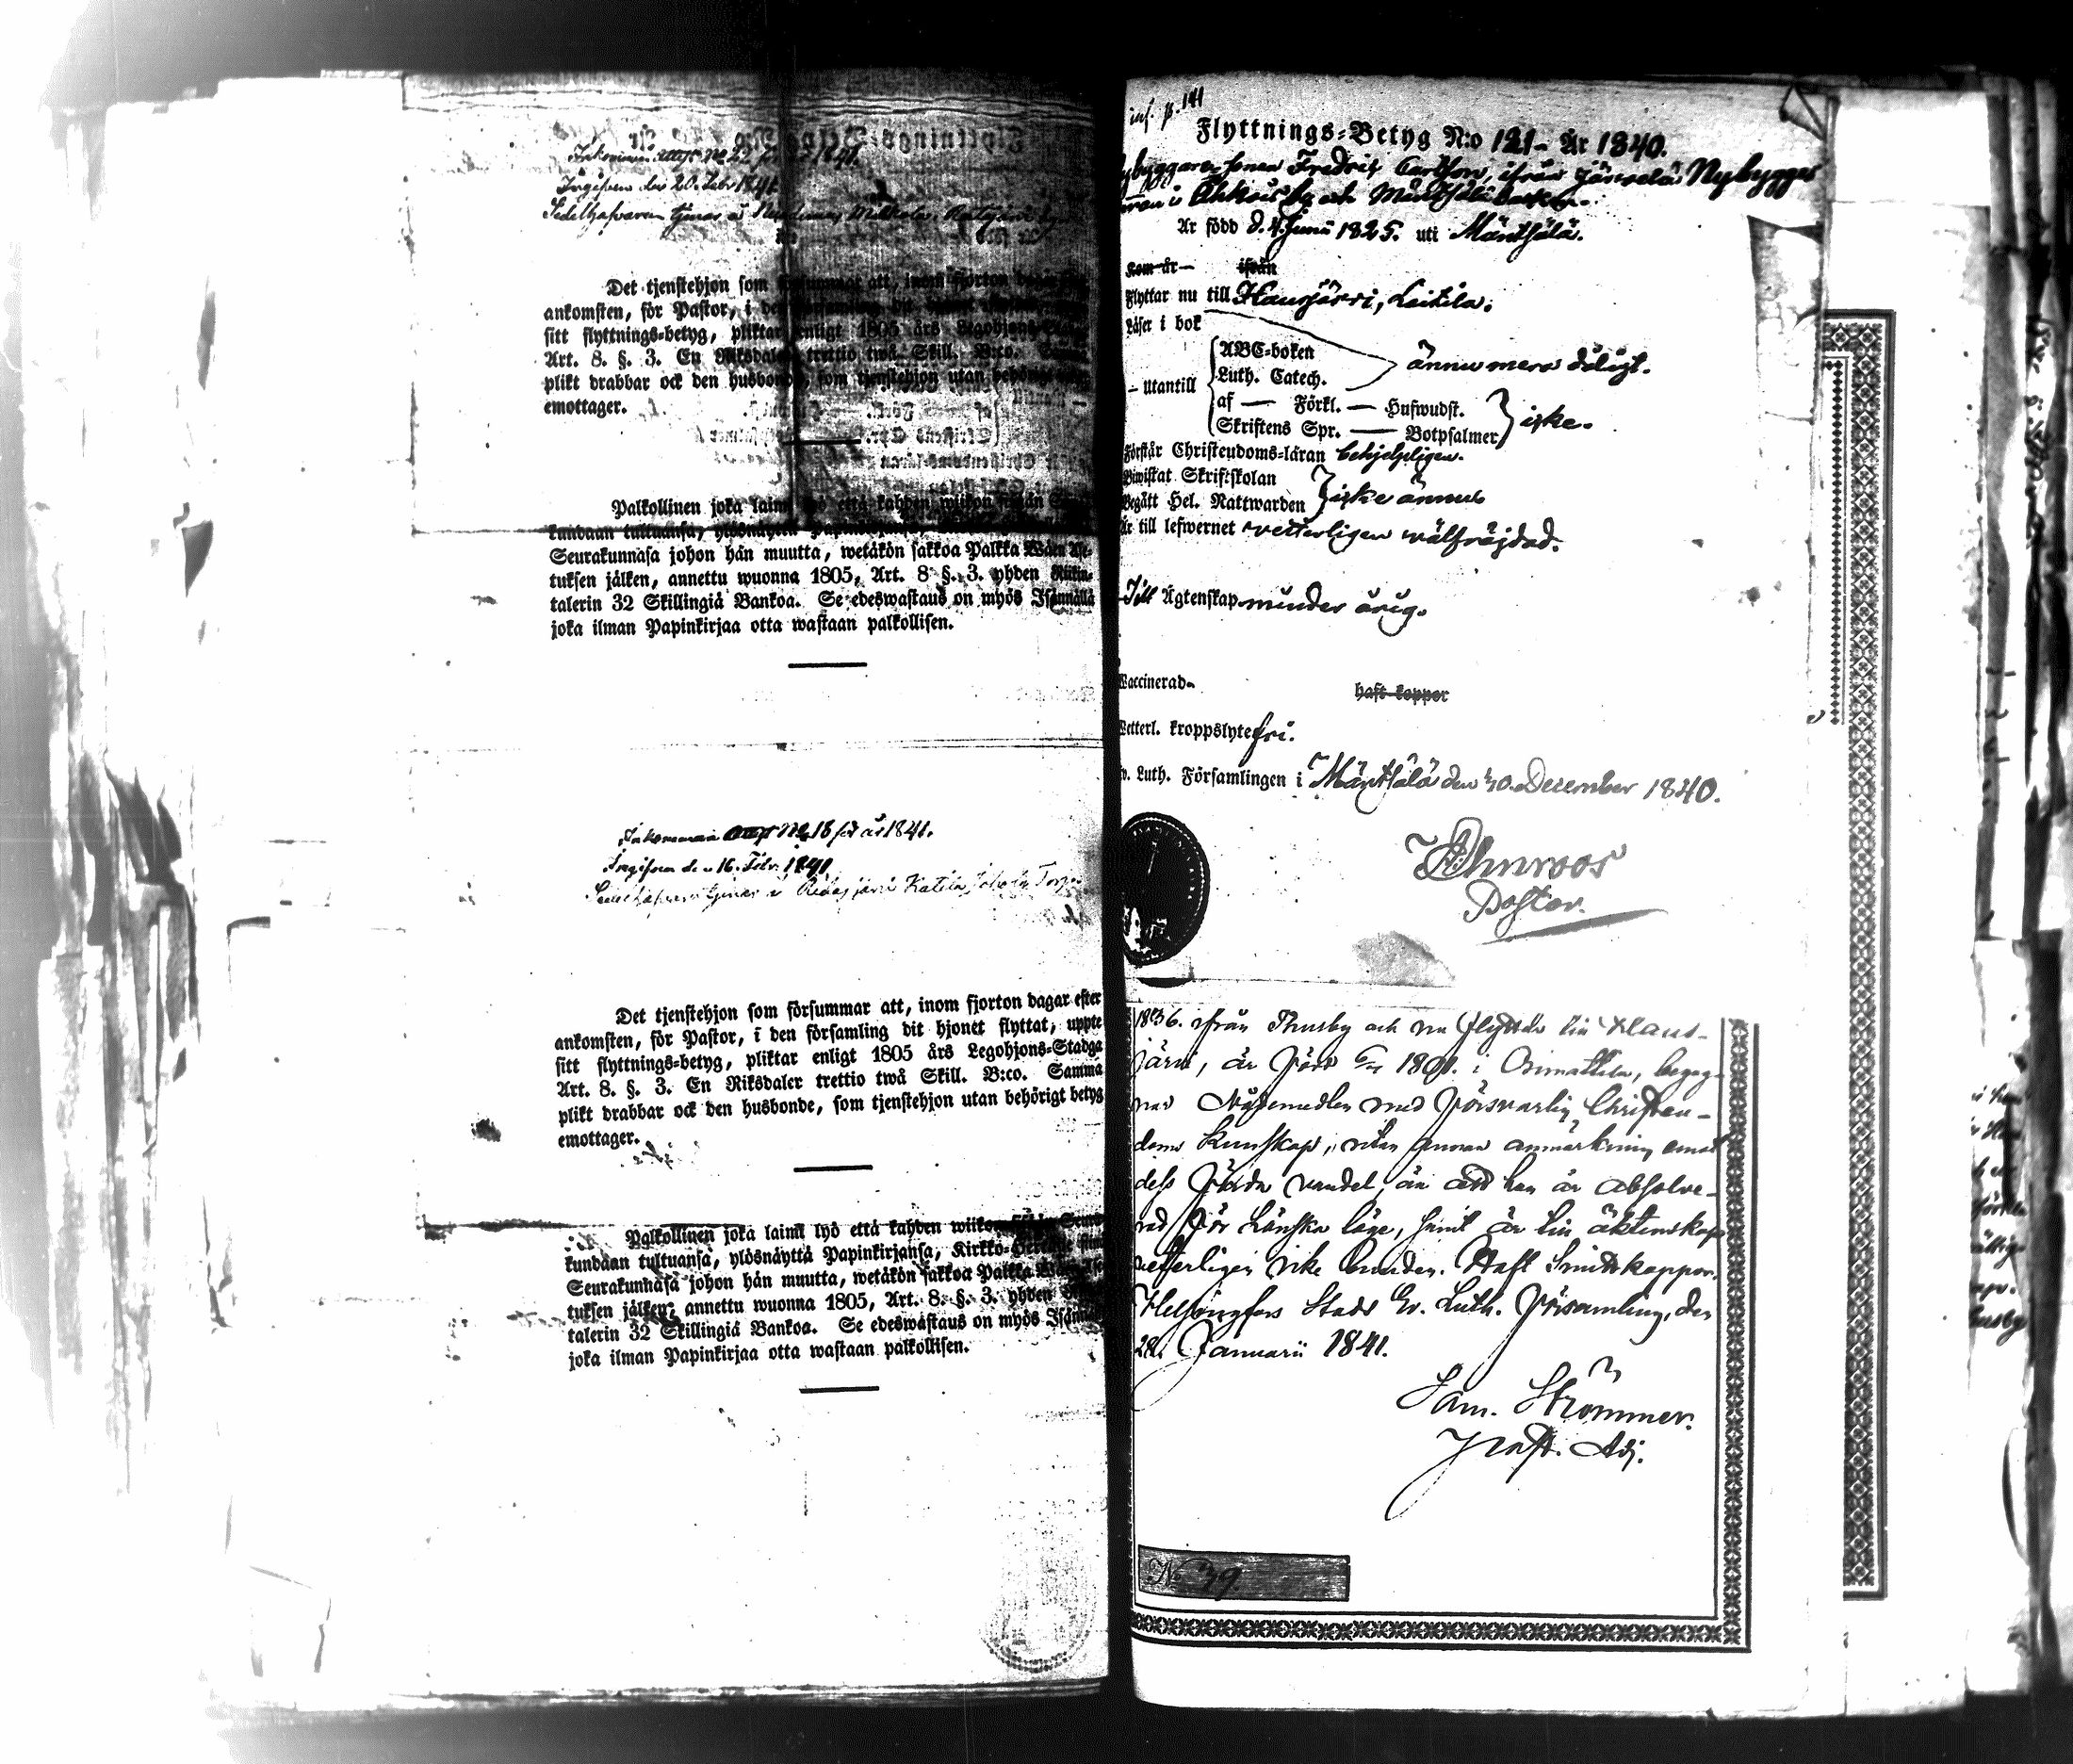 Inkommen attest No 22 för år 1841.
Ingifven den 20. Febr 1841.
Sedelhafvaren tjenar
Det tjenstehjon som försummar att, inom fjorton
ankomsten, för Pastor, i
sitt flyttnings-betyg, pliktar enligt 1805 års Legohjons
Art. 8. §. 3. En Riksdaler trettio twå Skill. B:co.
plikt drabbar ock den husbonde, som tjenstehjon utan
emottager.
Palkollinen joka laimi lyö että kahden wiikon
kundaan tultuansa, ylösnäyttä
Seurakunnasa johon hän muutta, wetäkön sakkoa Palkka Wäen Ase-
tuksen jälken, annettu wuonna 1805, Art. 8 §. 3. yhden Rikin-
talerin 32 Skillingiä Bankoa. Se edeswastaus on myös Isännällä
joka ilman Papinkirjaa otta wastaan palkollisen.
Inkommen attest No 18 för år 1841.
Ingifven den 16. Febr. 1841.
Sedelhafvaren tjenar i Ridasjärvi Katila
Det tjenstehjon som försummar att, inom fjorton dagar efter
ankomsten, för Pastor, i den församling dit hjonet flyttat, uppte
sitt flyttnings-betyg, pliktar enligt 1805 års Legohjons-Stadga
Art. 8. §. 3. En Riksdaler trettio twå Skill. B:co. Samma
plikt drabbar ock den husbonde, som tjenstehjon utan behörigt betyg
emottager.
Palkollinen joka laimi lyö että kahden wiikon
kundaan tultuansa, ylösnäyttä Papinkirjansa, Kirkko-Herralle
Seurakunnasa johon hän muutta, wetäkön sakkoa Palkka
tuksen jälken, annettu wuonna 1805, Art. 8. §. 3. yhden
talerin 32 Skillingiä Bankoa. Se edeswastaus on myös Isännällä
joka ilman Papinkirjaa otta wastaan palkollisen.
inf. p. 141
Flyttnings-Betyg N:o 121 – År 1840.
Nybyggaresonen Fredric Carlsson, ifrån Järvelä Nybygge
i Ohkois by och Mäntsälä Socken.
Är född d. 4 Junii 1825. uti Mäntsälä.
Kom år – ifrån
Flyttar nu till Hausjärvi, Leitila.
Läser i bok
– utantill
ABC-boken
Luth. Catech.
ännu mera dåligt.
af — Förkl. — Hufwudst.
Skriftens Spr. — Botpsalmer
icke.
Förstår Christendoms-läran behjelpligen.
Biwistat Skriftskolan
Begått Hel. Nattwarden
icke ännu
Är till lefwernet vetterligen wälfräjdad.
Till Ägtenskap minder årig.
Vaccinerad. haft koppor
Vetterl. kroppslyte fri.
Ev. Luth. Församlingen i Mäntsälä den 30. December 1840.
Pastor.
1836. ifrån Thusby och nu flyttar till Haus-
järvi, är född 1801. i Orimattila, begag-
nar Nådemedlen med försvarlig Christen-
doms Kunskap, utan annan anmärkning emot
dess förda vandel, än att han är absolve-
rad för Lönska läge, samt är till äktenskap
vetterligen icke bunden. Haft Smittkoppor.
Helsingfors Stads Ev. Luth. Församling, den
28. Januarii 1841.
Sam. Strömmer.
Past. Adj.
No 39.